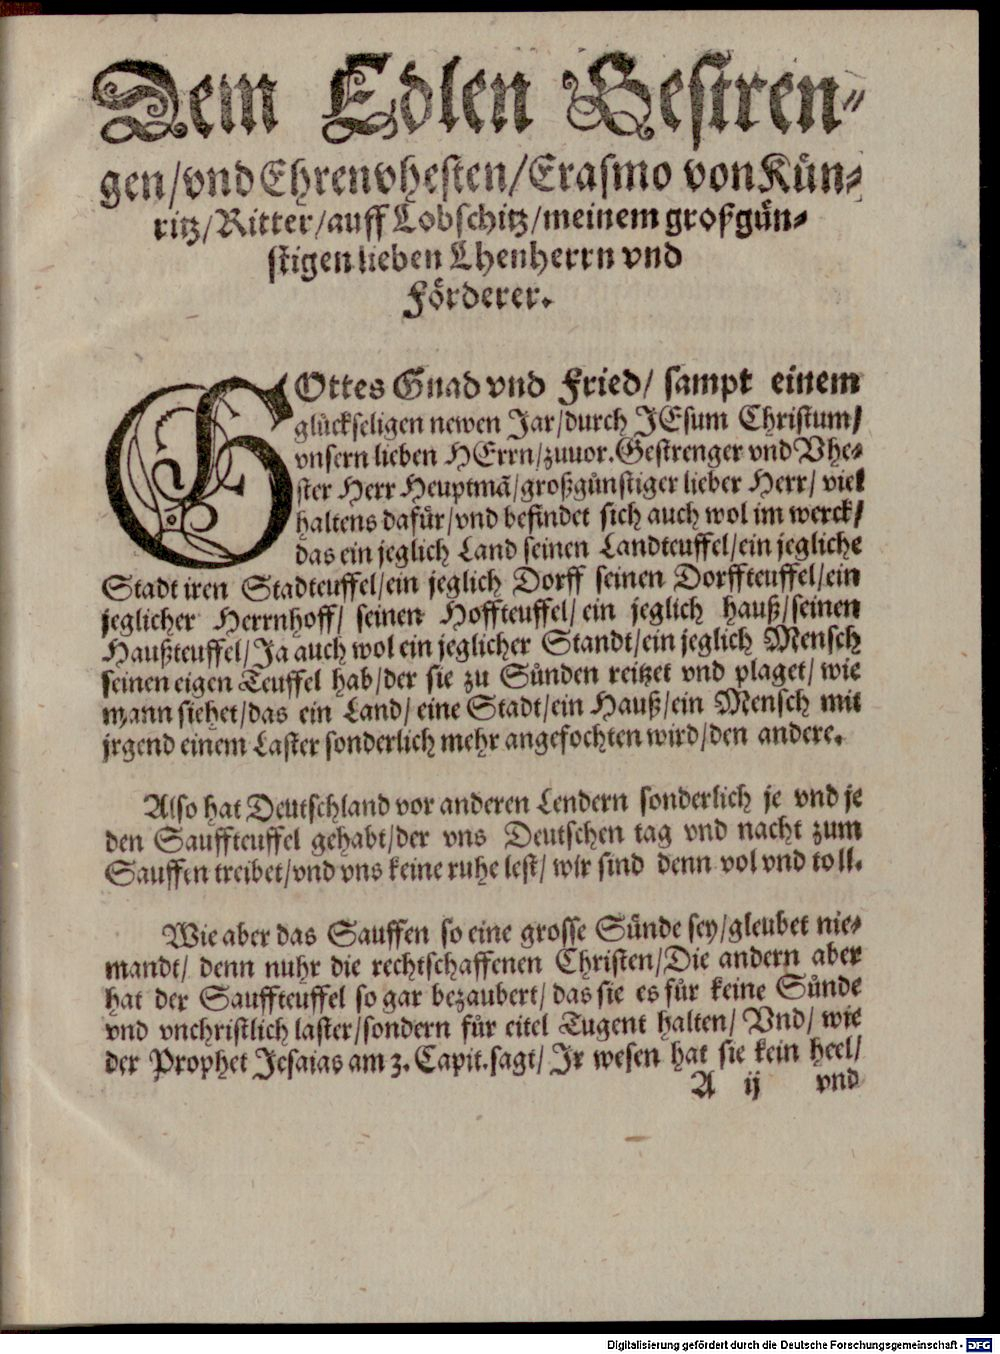 Dem Edlen Gestren-
gen/ vnd Ehrenvhesten/ Erasmo von Kün-
ritz/ Ritter/ auff Lobschitz/ meinem großgün-
stigen lieben Lhenherrn vnd
Förderer.
GOttes Gnad vnd Fried/ sampt einem
glückseligen newen Jar/ durch JEsum Christum/
vnsern lieben HErrn/ zuuor. Gestrenger vnd Vhe-
ster Herr Heuptmã/ großgünstiger lieber Herr/ viel
haltens dafür/ vnd befindet sich auch wol im werck/
das ein jeglich Land seinen Landteuffel/ ein jegliche
Stadt iren Stadteuffel/ ein jeglich Dorff seinen Dorffteuffel/ ein
jeglicher Herrnhoff/ seinen Hoffteuffel/ ein jeglich hauß/ seinen
Haußteuffel/ Ja auch wol ein jeglicher Standt/ ein jeglich Mensch
seinen eigen Teuffel hab/ der sie zu Sünden reitzet vnd plaget/ wie
mann siehet/ das ein Land/ eine Stadt/ ein Hauß/ ein Mensch mit
jrgend einem Laster sonderlich mehr angefochten wird/ den andere.
Also hat Deutschland vor anderen Lendern sonderlich je vnd je
den Sauffteuffel gehabt/ der vns Deutschen tag vnd nacht zum
Sauffen treibet/ vnd vns keine ruhe lest/ wir sind denn vol vnd toll.
Wie aber das Sauffen so eine grosse Sünde sey/ gleubet nie-
mandt/ denn nuhr die rechtschaffenen Christen/ Die andern aber
hat der Sauffteuffel so gar bezaubert/ das sie es für keine Sünde
vnd vnchristlich laster/ sondern für eitel Tugent halten/ Vnd/ wie
der Prophet Jesaias am 3. Capit. sagt/ Jr wesen hat sie kein heel/
A ij vnd
Digitalisierung gefördert durch die Deutsche Forschungsgemeinschaft - DFG